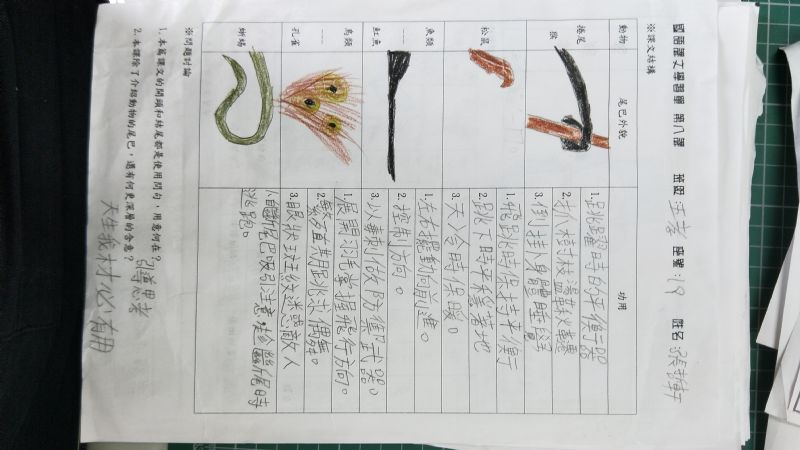 國語課文學習單 第八課 班級 五 座號:19 姓名
※課文結構
動物 尾巴外貌 功用
捲尾猴
1.跳躍時的平衡器
2.抓樹枝
3.倒掛身體睡覺
松鼠
1.飛跳時保持平衡
2.跳下時平穩落地
3.天冷時保暖。
魚類
1.左右擺動前進。
2.控制方向。
魟魚
3.以棘刺做防衛武器。
鳥類
1.展開羽毛掌握飛行方向。
孔雀
2.繁殖期求偶。
3.眼狀斑紋迷惑敵人
蜥蜴
1.自斷尾巴吸引注意,趁斷尾時逃跑。
※問題討論
1. 本篇課文的開頭和結尾都是使用問句,用意何在?引導思考
2. 本課除了介紹動物的尾巴,還有何更深層的含意?
天生我材必有用